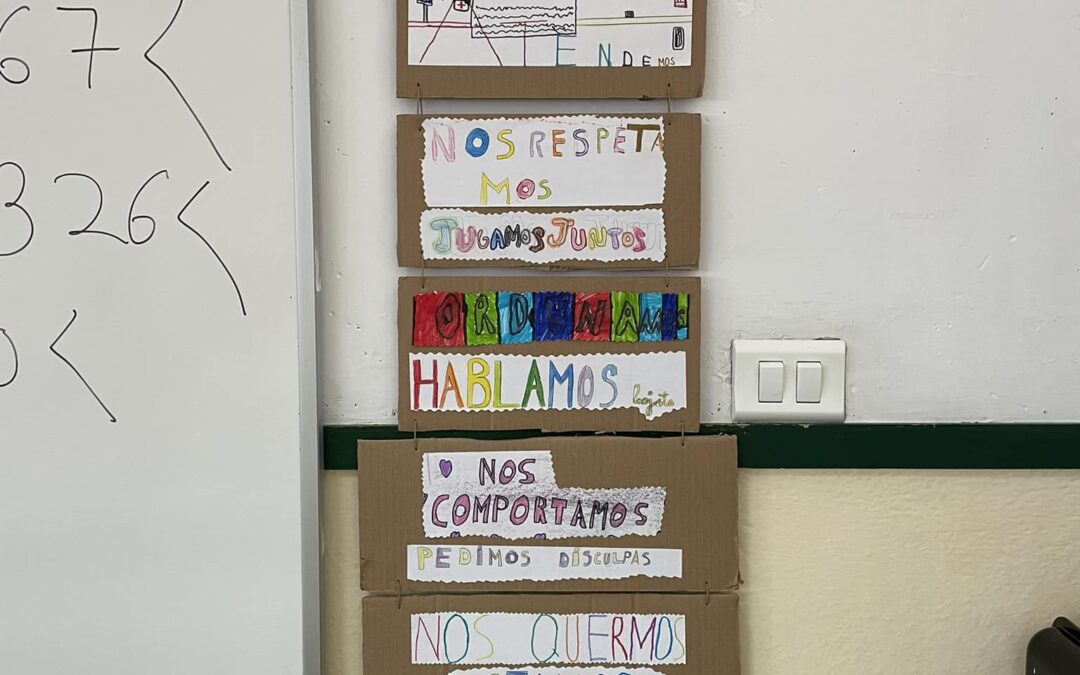 67
326
ENDEMOS
NOS RESPETA
MOS
JUGAMOS JUNTOS
ORDENAMOS
HABLAMOS bajito
NOS
COMPORTAMOS
PEDIMOS DISCULPAS
NOS QUERMOS